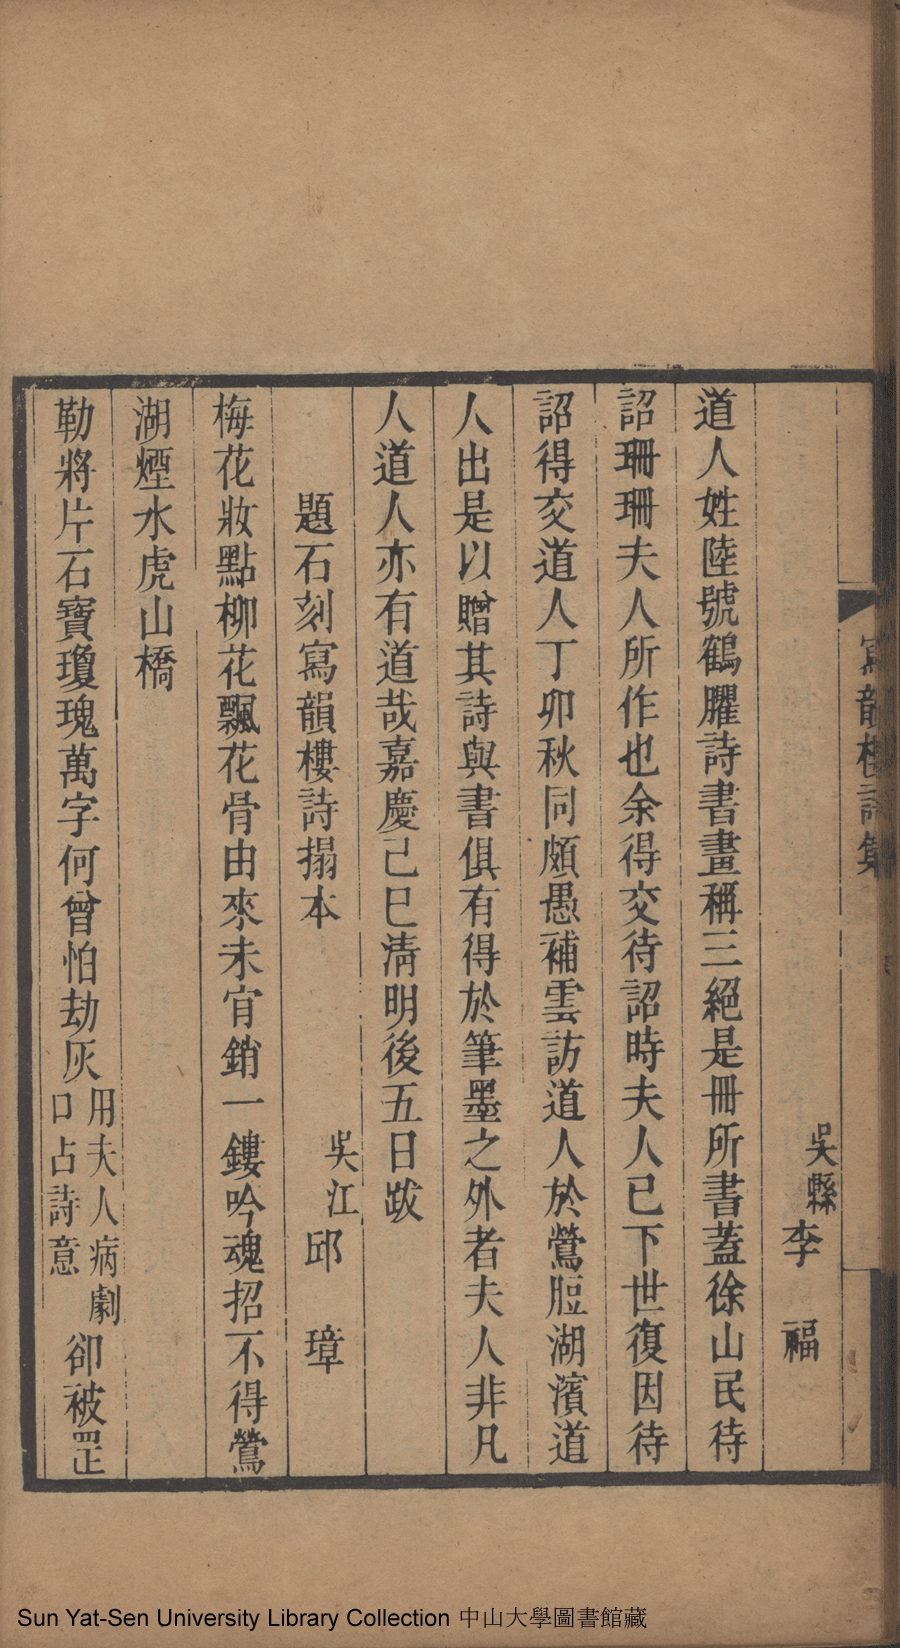 寫韻樓詩集
吳縣李　福
道人姓陸號鶴臞詩書畫稱三絕是冊所書蓋徐山民待
詔珊珊夫人所作也余得交待詔時夫人已下世復因待
詔得交道人丁卯秋同頗愚補雲訪道人於鶯脰湖濱道
人出是以贈其詩與書俱有得於筆墨之外者夫人非凡
人道人亦有道哉嘉慶己巳淸明後五日跋
題石刻寫韻樓詩搨本
吳江邱　璋
梅花妝點柳花飄花骨由來未肎銷一鏤吟魂招不得鶯
湖煙水虎山橋
勒將片石寶瓊瑰萬字何曾怕劫灰用夫人病劇口占詩意卻被罡
Sun Yat-Sen University Library Collection 中山大學圖書館藏